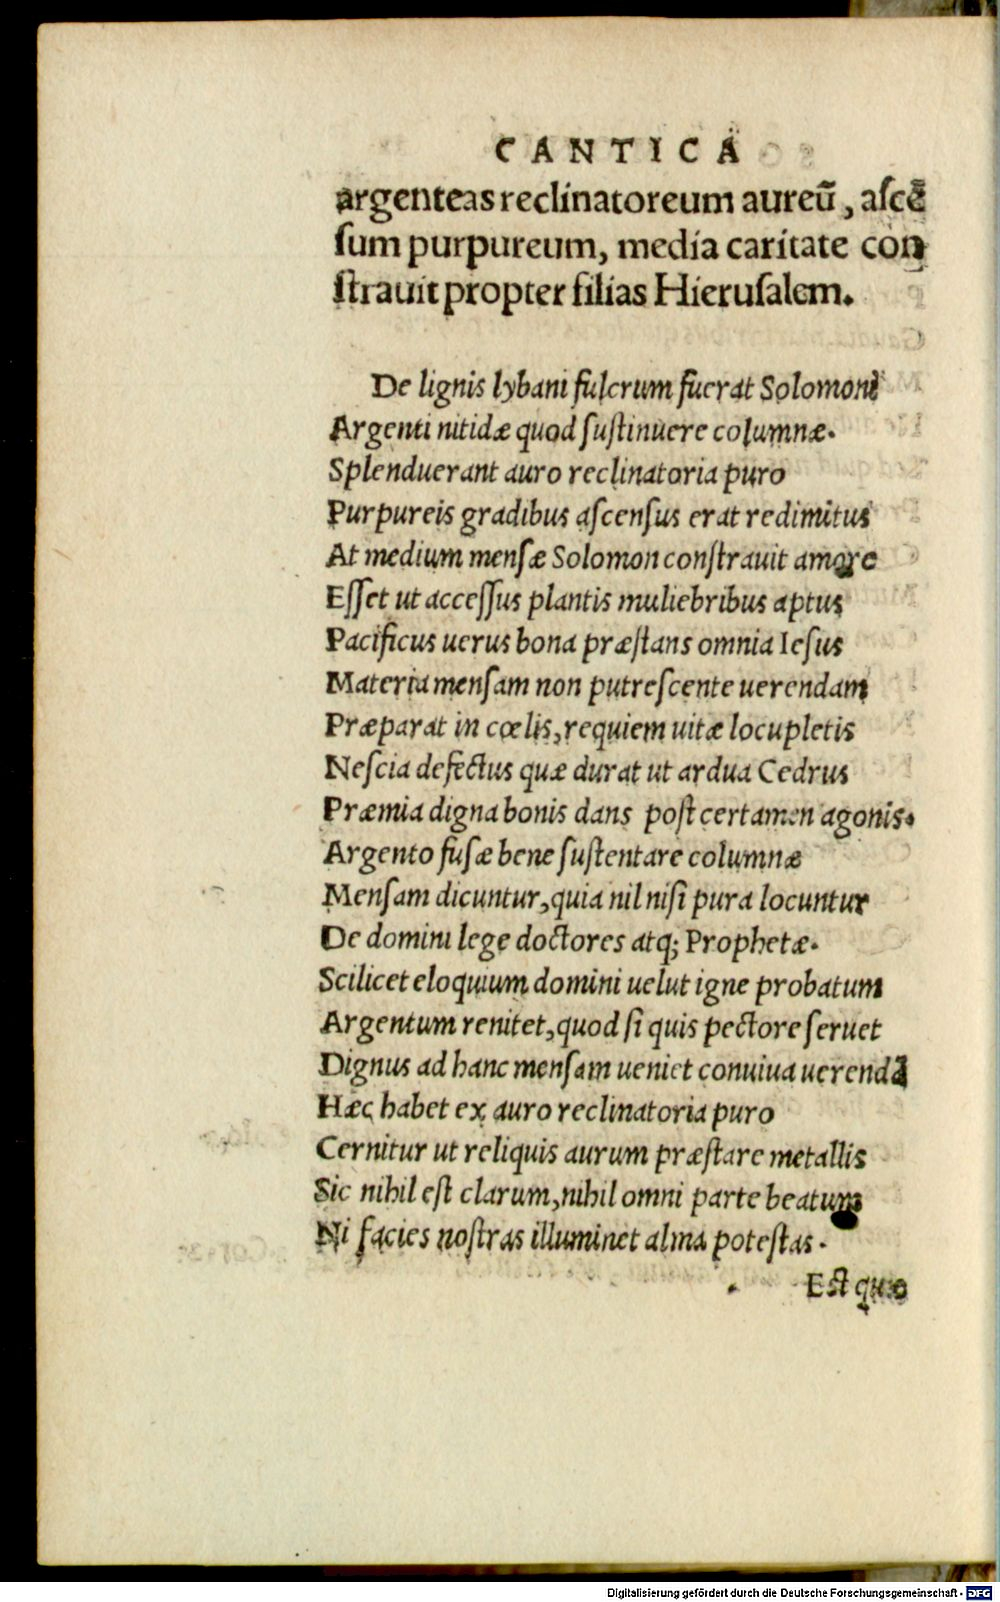 CANTICA
argenteas reclinatoreum aureū, aſcē
ſum purpureum, media caritate con
ſtrauit propter filias Hieruſalem.
De lignis lybani fulcrum fuerat Solomoni
Argenti nitidæ quod ſuſtinuere columnæ.
Splenduerant auro reclinatoria puro
Purpureis gradibus aſcenſus erat redimitus
At medium menſæ Solomon conſtrauit amore
Eſſet ut acceſſus plantis muliebribus aptus
Pacificus uerus bona præſtans omnia Ieſus
Materia menſam non putreſcente uerendam
Præparat in cœlis, requiem uitæ locupletis
Neſcia defectus quæ durat ut ardua Cedrus
Præmia digna bonis dans poſt certamen agonis.
Argento fuſæ bene ſuſtentare columnæ
Menſam dicuntur, quia nil niſi pura locuntur
De domini lege doctores atq; Prophetæ.
Scilicet eloquium domini uelut igne probatum
Argentum renitet, quod ſi quis pectore ſeruet
Dignus ad hanc menſam ueniet conuiua uerendā
Hæc habet ex auro reclinatoria puro
Cernitur ut reliquis aurum præſtare metallis
Sic nihil eſt clarum, nihil omni parte beatum
Ni facies noſtras illuminet alma poteſtas.
Eſt quæ
Digitalisierung gefördert durch die Deutsche Forschungsgemeinschaft - DFG